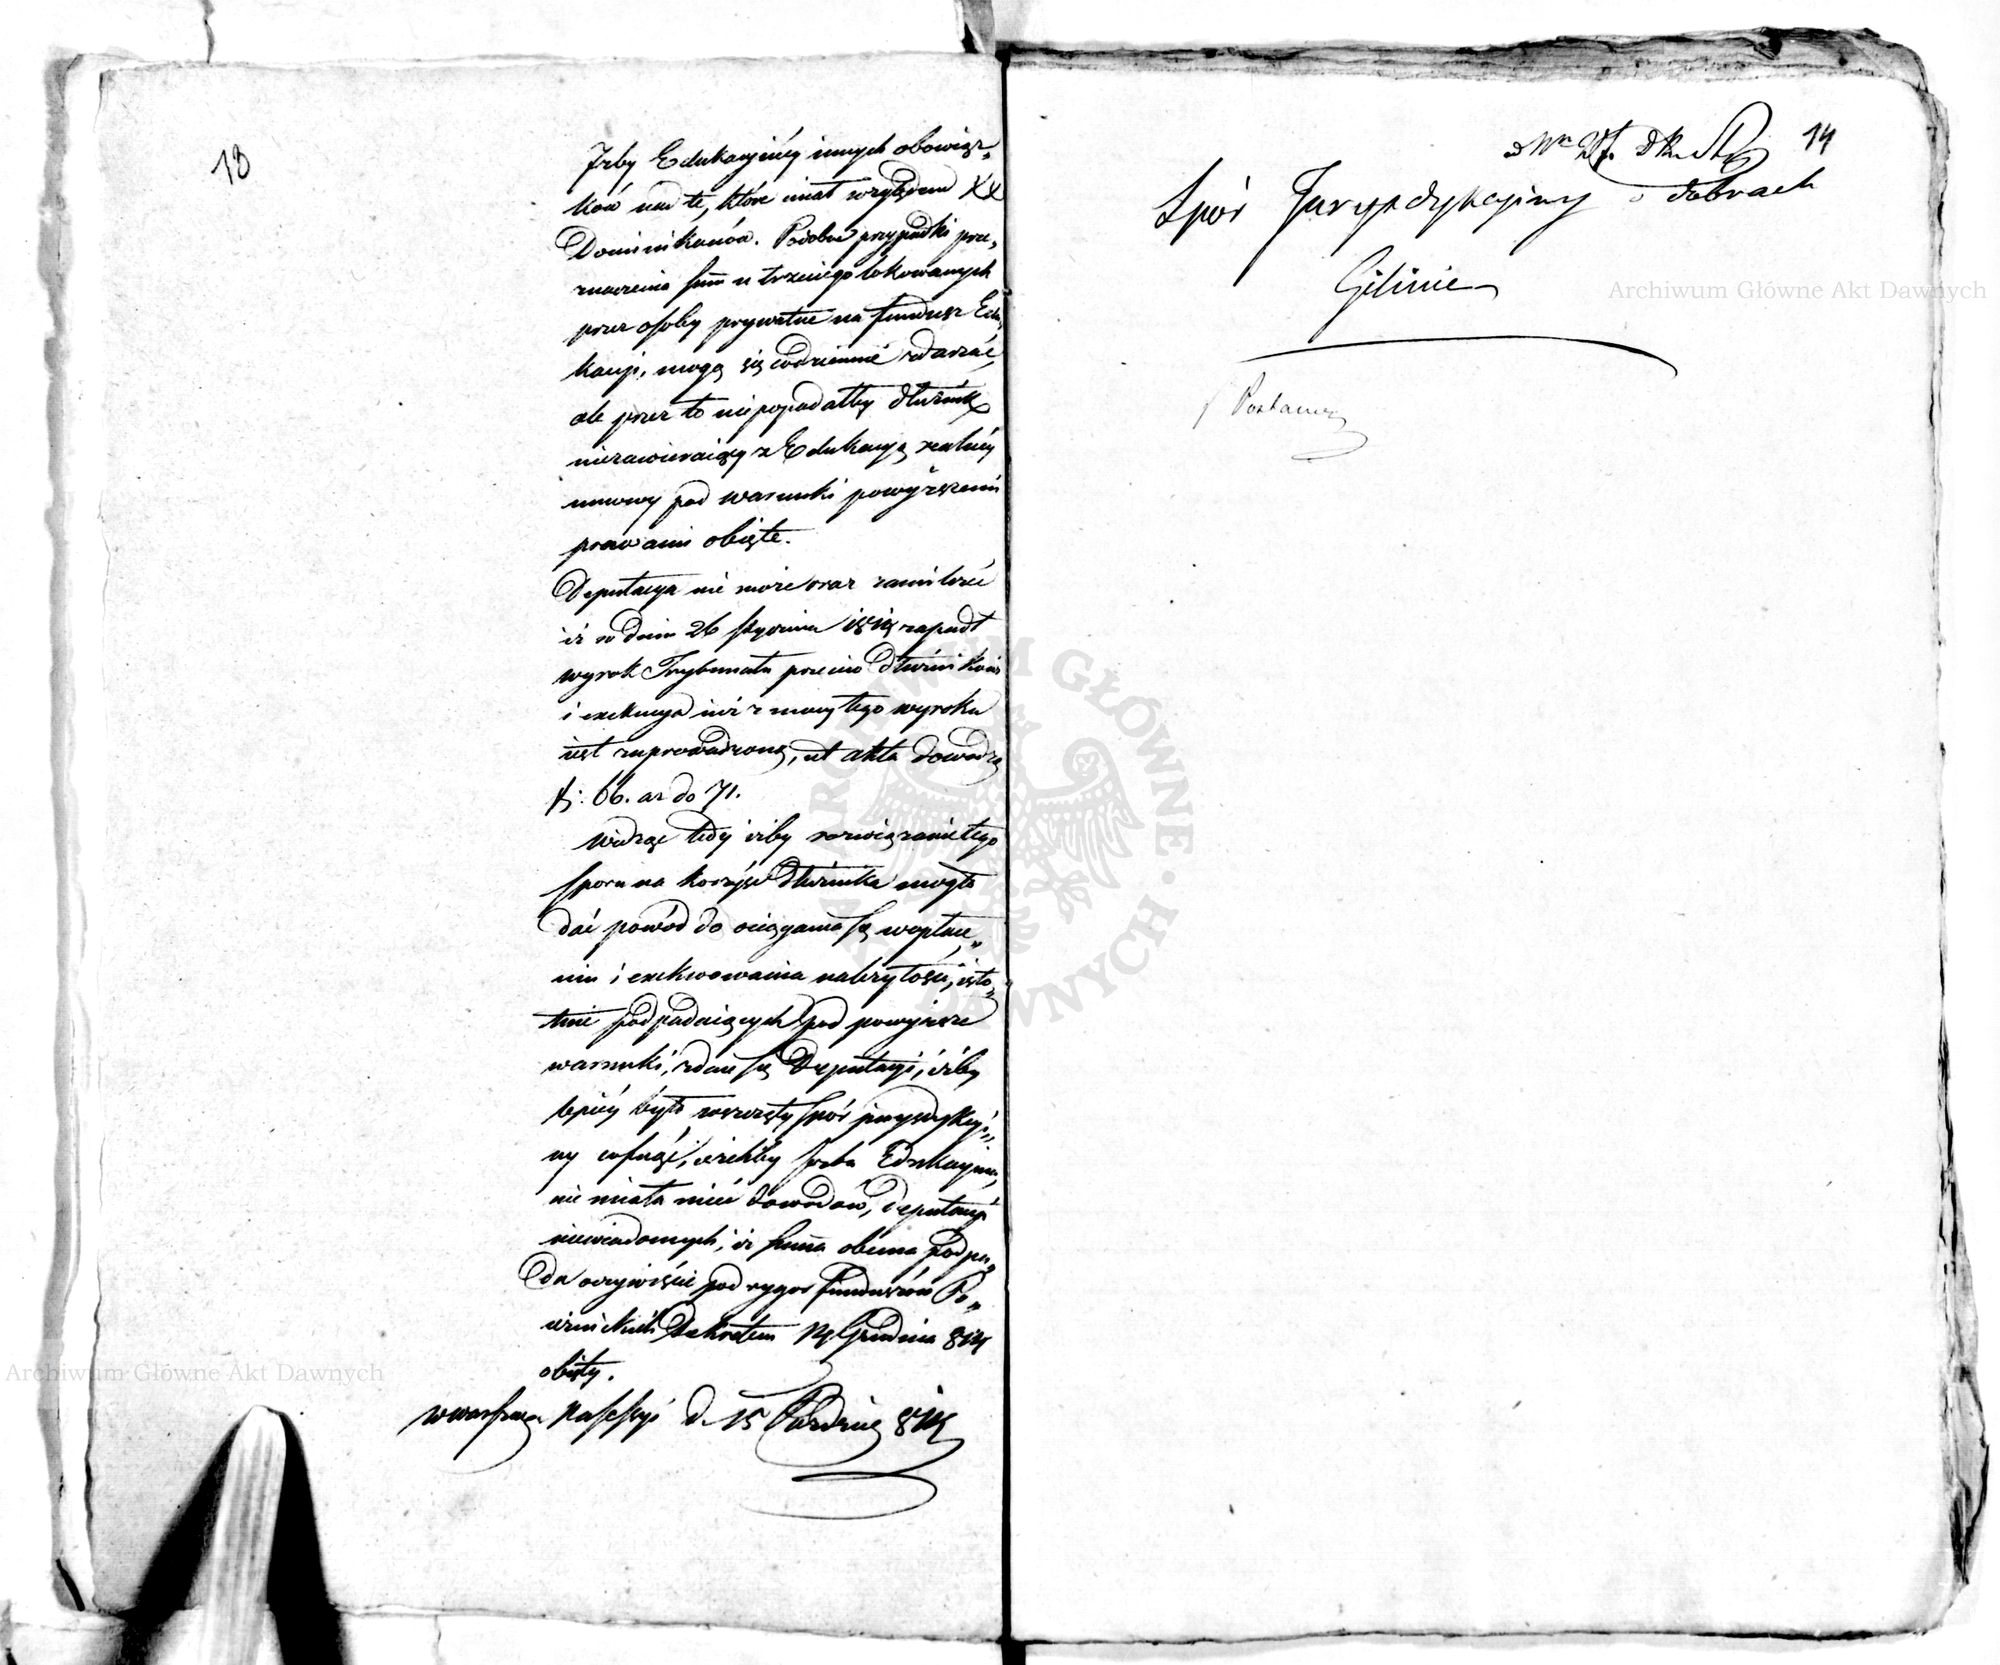 13
Izby Edukacyiney innych obowiąz„
ków nad te, które miał względem XX
Dominikanów. Podobne przypadki prze„
znaczenia summ u trzeciego lokowanych
przez osoby prywatne na fundusz Edu„
kacyi, mogą się codziennie zdarzać,
ale przez to nie popadałby dłużnik
niezawieraiący z Edukacyą realney
umowy pod warunki powyższemi
prawami obięte.
Deputacya nie może oraz zamilczeć
iż w dniu 26 stycznia zapadł
wyrok Trybunału przeciw dłużnikowi
i exekucya iuż z mocy tego wyroku
iest zaprowadzoną, ut akta dowodzą
66. aż do 71.
Widząc tedy iżby rozwiązanie tego
sporu na korzyść dłużnika mogło
dać powód do ociągania się w opłace„
niu i exekwowania należytości, isto„
tnie podpadaiących pod powyższe
warunki, zdaie się Deputacyi, iżby
lepiey było wszczęty spór jurysdykcyi„
ny cofnąć, ieżeliby Izba Edukacyina,
nie miała mieć dowodów, deputacyi
niewiadomych, iż summa obecna podpa„
da oczywiście pod rygor funduszów Po„
iezuickich Dekretem 14 Grudnia 814
obięty.
w Warszawie na Sessyi d. 15 Paździer 814
14
Spór Jurysdykcyiny o dobrach
Gilinie
Archiwum Główne Akt Dawnych
Archiwum Główne Akt Dawnych
ARCHIWUM GŁÓWNE AKT DAWNYCH